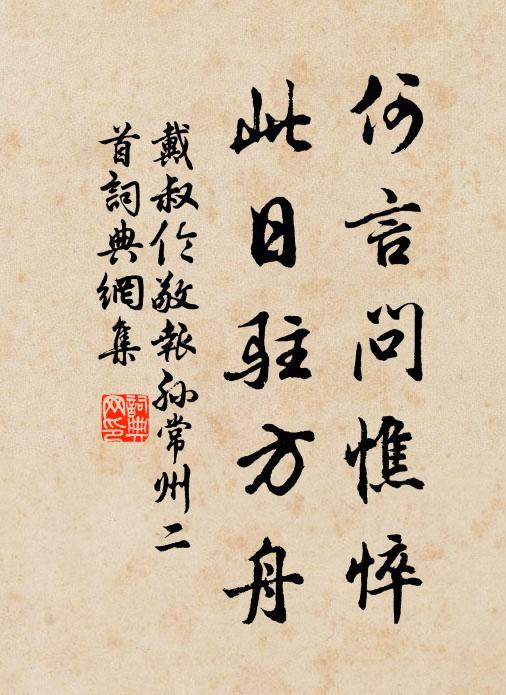 何言問憔悴
此日駐方舟
戴叔伦敬報孙常州二
首詞典網集
詞典
网印